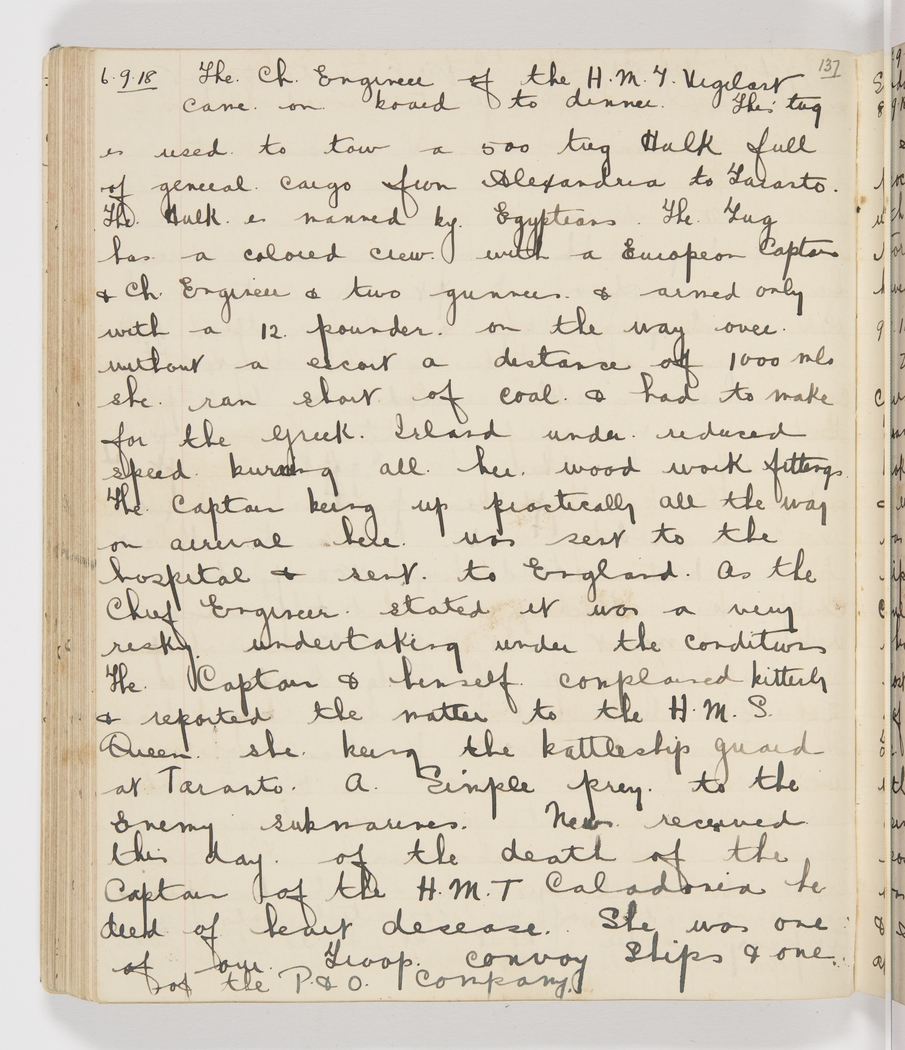 137
6.9.18 The. Ch. Engineer of the H.M.T. Vigilant
came. on board to dinner. This tug
is used. to tow a 500 tug Hulk full
of general. cargo from Alexandria to Taranto.
The. Hulk. is manned by. Egyptians. The. Tug
has a colored crew. with a European Captain
& Ch. Engineer & two gunners. & armed only
with a 12. pounder. on the way over.
without a escort a distance of 1000 mls
she. ran short of coal. & had to make
for the Greek. Island under. reduced
speed. burning all. her. wood work fittings.
The. Captain being up practically all the way
on arrival here. was sent to the
hospital & sent. to England. As the
Chief Engineer. stated it was a very
risky. undertaking under the conditions
The. Captain & himself. complained bitterly
& reported the matter to the H.M.S.
Queen. she. being the battleship guard
at Taranto. A. Simple prey. to the
Enemy submarines. News. received
this day. of the death of the
Captain of the H.M.T Caladonia he
died of heart desease. She was one
of our. Troop. convoy ships & one.
of the P.&O. Company.